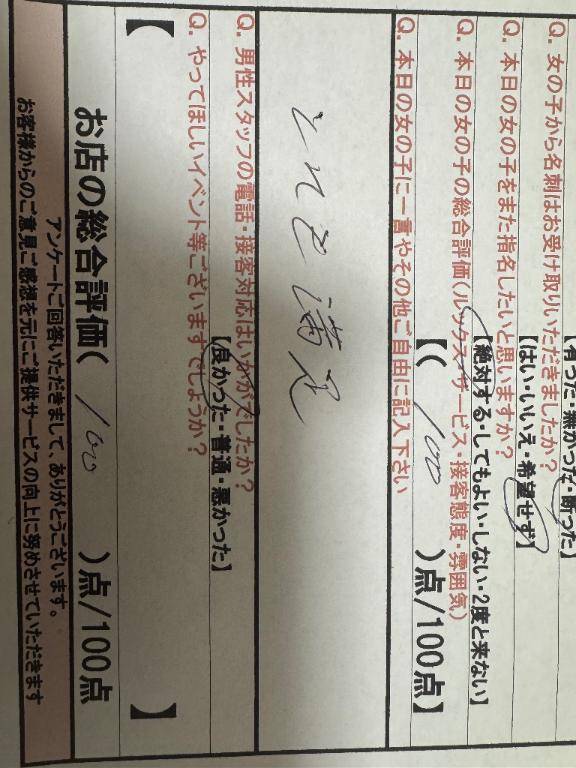 【有った・無かった・断った】
Q. 女の子から名刺はお受け取りいただきましたか?
【はい・いいえ・希望せず】
Q. 本日の女の子をまた指名したいと思いますか?
【絶対する・してもよい・しない・2度と来ない】
Q. 本日の女の子の総合評価(ルックス・サービス・接客態度・雰囲気)
【( 100 )点/100点】
Q. 本日の女の子に一言やその他ご自由に記入下さい
とても満足
Q. 男性スタッフの電話・接客対応はいかがでしたか?
【良かった・普通・悪かった】
Q. やってほしいイベント等ございますでしょうか?
【 】
お店の総合評価( 100 )点/100点
アンケートご回答いただきまして、ありがとうございます。
お客様からのご意見ご感想を元にご提供サービスの向上に努めさせていただきます